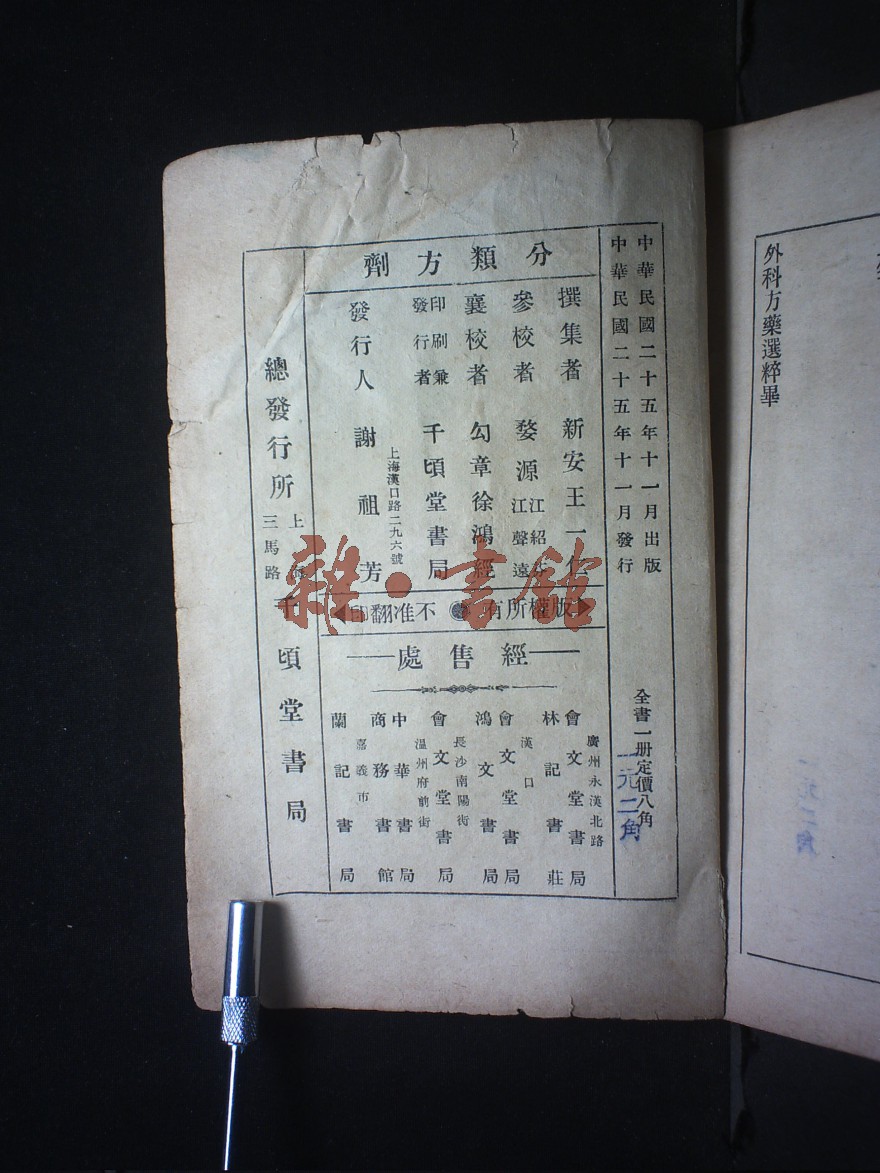 外科方藥選粹畢
中華民國二十五年十一月出版
中華民國二十五年十一月發行
全書一册定價八角
一元二角
分類方劑
撰集者 新安王一仁
參校者 婺源 江紹 江聲遠
襄校者 勾章徐鴻經
印刷兼發行者 千頃堂書局
上海漢口路二九六號
發行人 謝祖芳
版權所有 不准翻印
經售處
廣州永漢北路
會文堂書局
林記書莊
漢口
會文堂書局
鴻文書局
長沙南陽街
會文堂書局
溫州府前街
中華書局
商務書館
嘉義市
蘭記書局
總發行所 上海三馬路 千頃堂書局
雜·書館